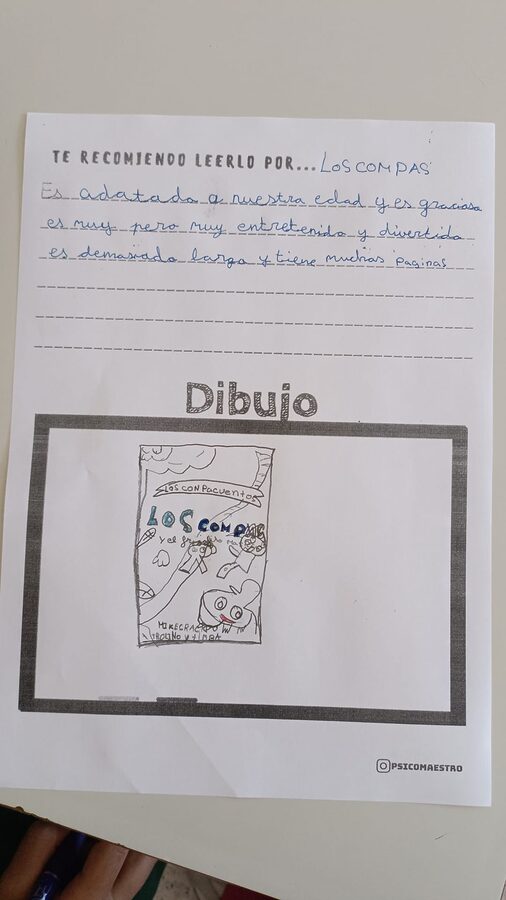 TE RECOMIENDO LEERLO POR... LOS COMPAS
Es adatada a nuestra edad y es graciosa
es muy pero muy entretenido y divertida
es demasiado largo y tiene muchas paginas
Dibujo
LOS CONPACUENTOS
LOS COMPAS
y el
TROLINO Y
PSICOMAESTRO